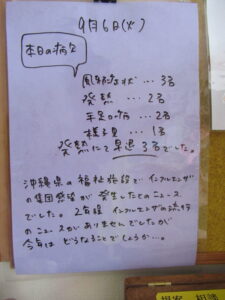 9月6日(火)
本日の病欠
風邪症状…3名
発熱…2名
手足口病…2名
様子見…1名
発熱にて早退3名でした。
沖縄県の福祉施設でインフルエンザ
の集団感染が発生したとのニュース
でした。2年程インフルエンザの流行
のニュースがありませんでしたが
今年はどうなることでしょうか…。